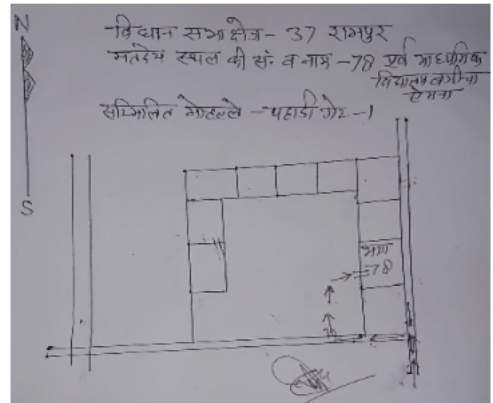 N
विधान सभा क्षेत्र - 37 रामपुर
मतदेय स्थल की सं० व नाम - 78 पूर्व माध्यमिक
विद्यालय बगीचा
ऐमना
सम्मिलित मोहल्ले - पहाडी गेट - 1
S
भाग
78